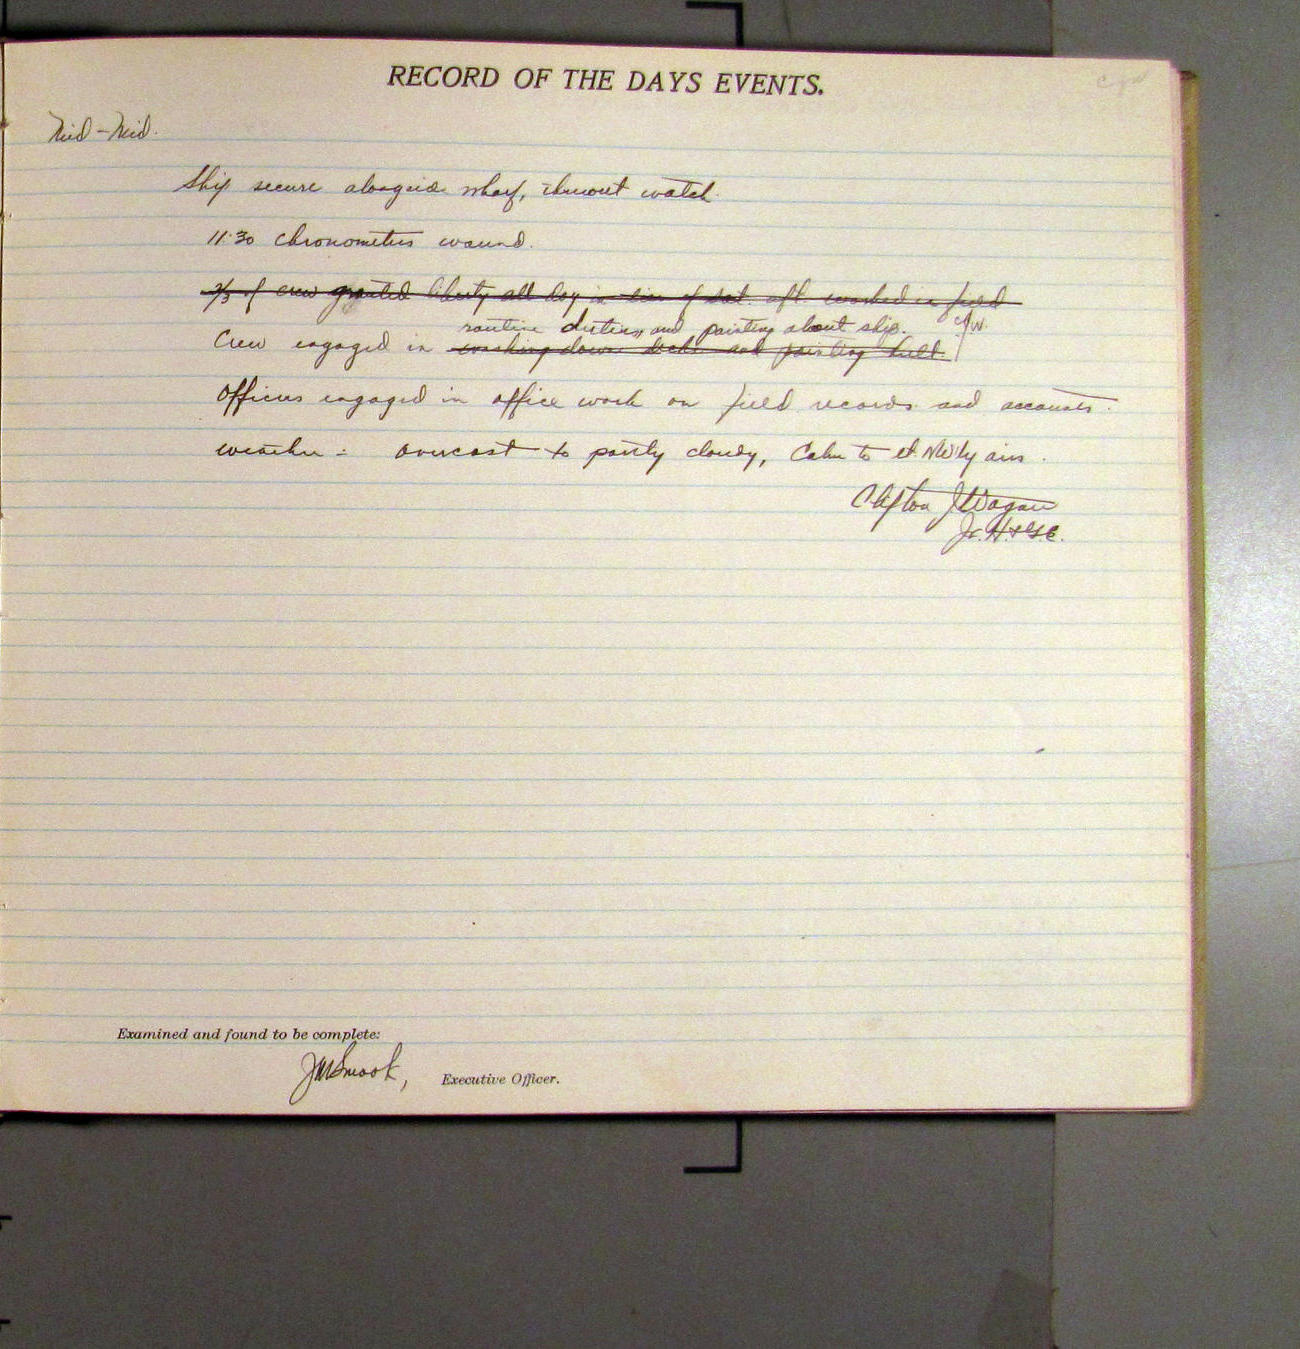 RECORD OF THE DAYS EVENTS.
Mid - Mid.
Ship secure alongside wharf, throout watch
11:30 chronometers wound.
2/3 of crew granted liberty all day in lieu of sat. aft. worked in field
routine duties, and painting about ship. CJW.
Crew engaged in washing down decks and painting hull.
Officers engaged in office work on field records and accounts.
weather - overcast to partly cloudy, Calm to lt. NW'ly airs.
Clifton J. Wagar
Jr. H.+G.E.
Examined and found to be complete:
JMSmook, Executive Officer.